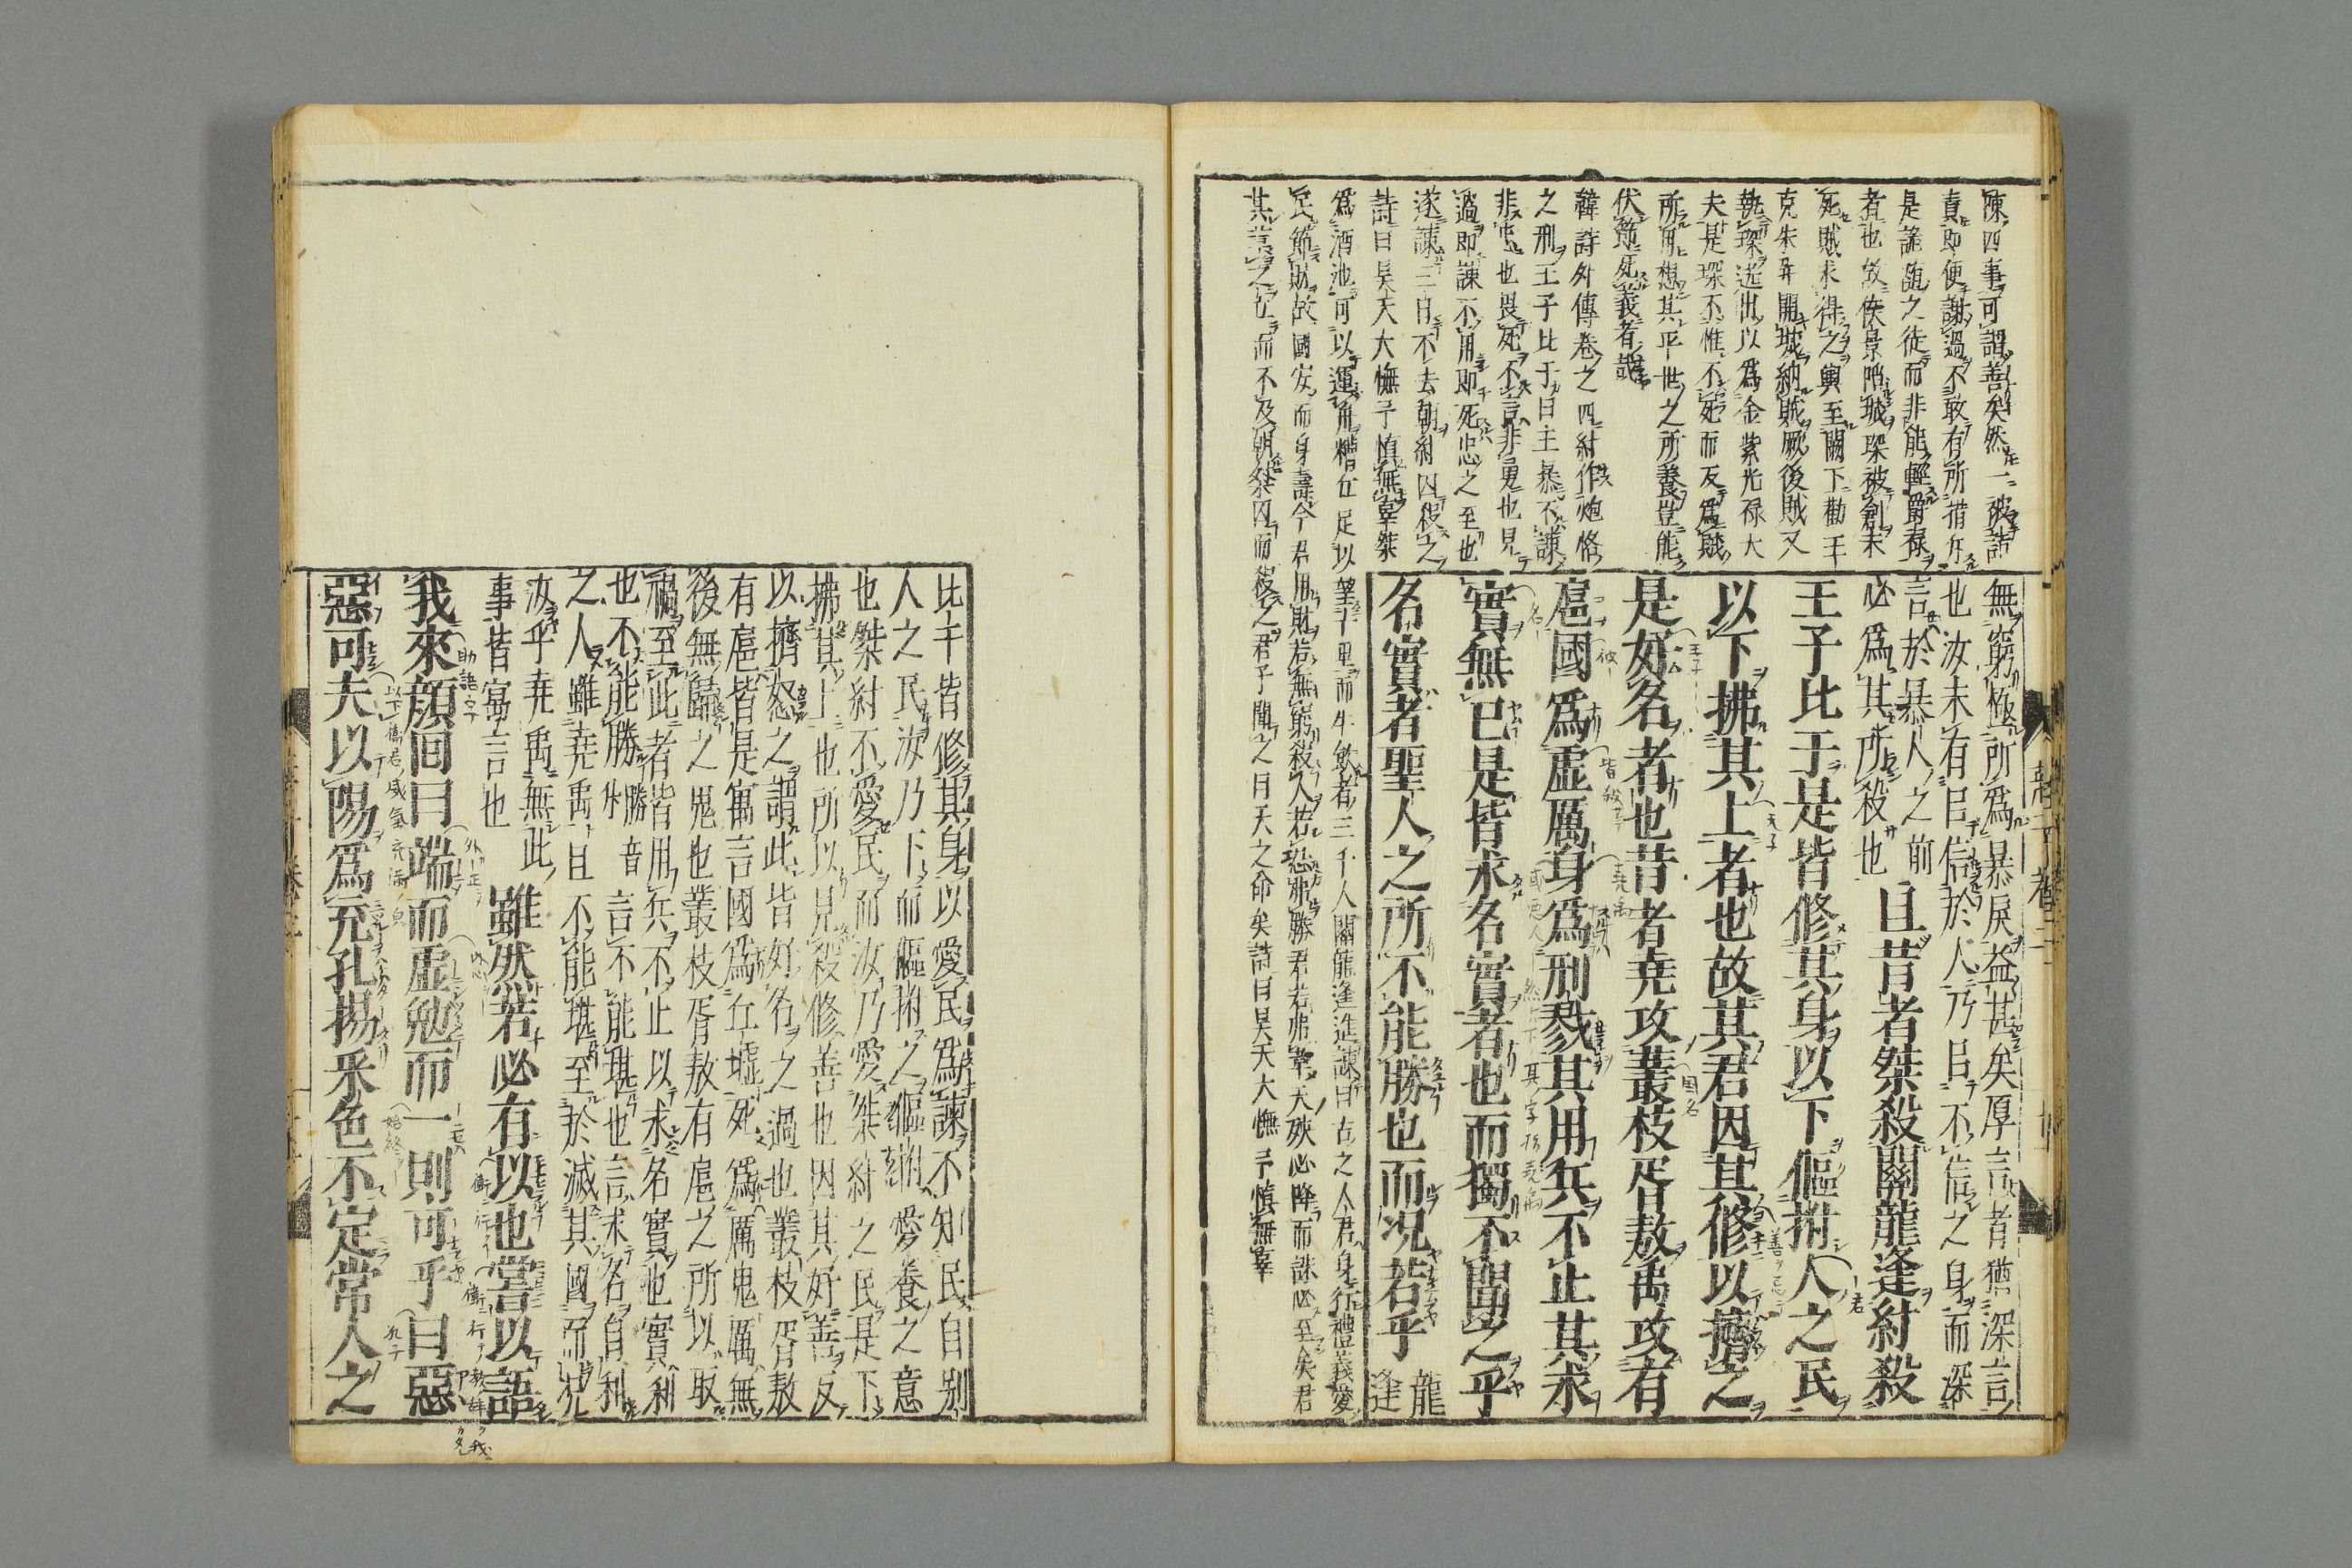 陳四事可謂善矣然一被詰
責即便謝過不敢有所措亦
是詭隨之徒而非能輕爵祿
者也故侯景陷城琛被創未
死賊求得之輿至闕下勸王
克朱异開城納賊厥後賊又
執琛送出以爲金紫光祿大
夫是琛不惟不死而反爲賊
所用想其平世之所養豈能
伏節死義者哉
韓詩外傳卷之四紂作炮烙
之刑王子比干曰主暴不諫
非忠也畏死不言非勇也見
過即諫不用即死忠之至也
遂諫三日不去朝紂囚殺之
詩曰昊天大憮予慎無辜桀
爲酒池可以運舟糟丘足以望十里而牛飲者三千人關龍逢進諫曰古之人君身行禮義愛
民節財故國安而身壽今君用財若無窮殺人若恐弗勝君若弗革天殃必降而誅必至矣君
其革之立而不去朝桀囚而殺之君子聞之曰天之命矣詩曰昊天大憮予慎無辜
無窮極所爲暴戾益甚矣厚言者猶深言
也汝未有巨信於人乃巨不信之身而深
言於暴人之前
必爲其所殺也
且昔者桀殺關龍逢紂殺
王子比干是皆修其身以下傴拊人之民
以下拂其上者也故其君因其修以擠之
是好名者也昔者堯攻叢枝胥敖禹攻有
扈國爲虛厲身爲刑戮其用兵不止其求
實無已是皆求名實者也而獨不聞之乎
名實者聖人之所不能勝也而況若乎
龍
逢
比干皆修其身以愛民爲諫不知民自別
人之民汝乃下而傴拊之傴拊愛養之意
也桀紂不愛民而汝乃愛桀紂之民是下
拂其上也所以見殺修善也因其好善反
以擠怒之謂此皆好名之過也叢枝胥敖
有扈皆是寓言國爲丘墟死爲厲鬼厲無
後無歸之鬼也叢枝胥敖有扈之所以取
禍至此者皆用兵不止以求名實也實利
也不能勝勝音言不能堪也言求名自利
之人雖堯禹且不能堪至於滅其國而況
汝乎堯禹無此
事皆寓言也
雖然若必有以也嘗以語
我來顏回曰端而虛勉而一則可乎曰惡
惡可夫以陽爲充孔揚采色不定常人之